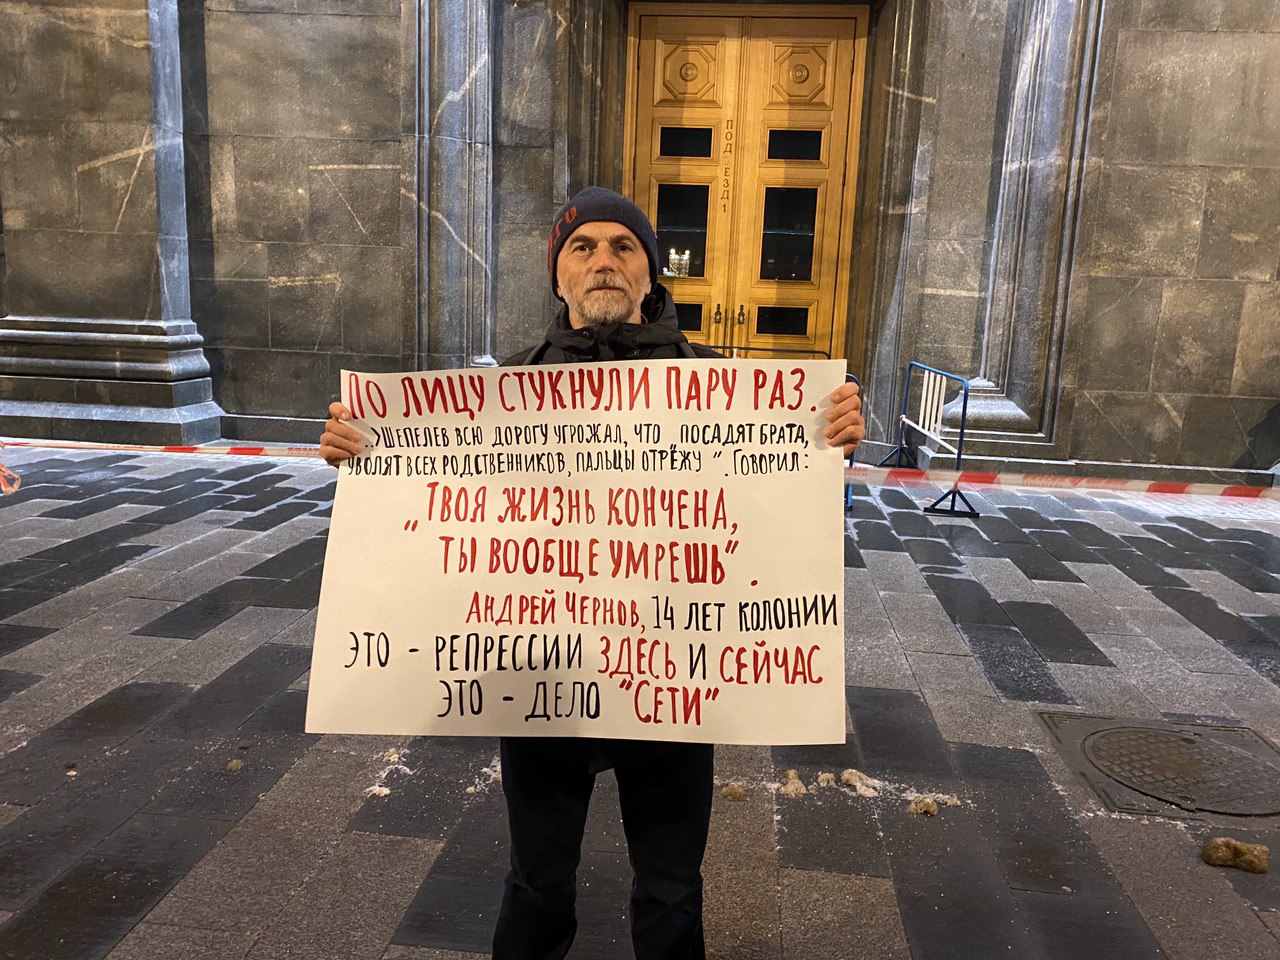 ПОДЪЕЗД 1
ПО ЛИЦУ СТУКНУЛИ ПАРУ РАЗ.
..> ШЕПЕЛЕВ ВСЮ ДОРОГУ УГРОЖАЛ, ЧТО „ПОСАДЯТ БРАТА,
УВОЛЯТ ВСЕХ РОДСТВЕННИКОВ, ПАЛЬЦЫ ОТРЕЖУ". ГОВОРИЛ:
„ТВОЯ ЖИЗНЬ КОНЧЕНА,
ТЫ ВООБЩЕ УМРЕШЬ".
АНДРЕЙ ЧЕРНОВ, 14 ЛЕТ КОЛОНИИ
ЭТО - РЕПРЕССИИ ЗДЕСЬ И СЕЙЧАС
ЭТО - ДЕЛО "СЕТИ"